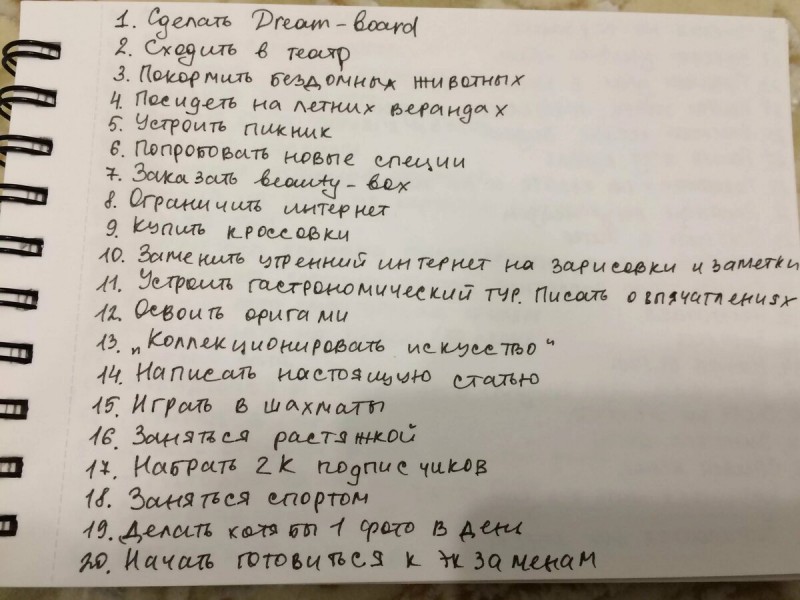 1. Сделать Dream-board
2. Сходить в театр
3. Покормить бездомных животных
4. Посидеть на летних верандах
5. Устроить пикник
6. Попробовать новые специи
7. Заказать beauty-box
8. Ограничить интернет
9. Купить кроссовки
10. Заменить утренний интернет на зарисовки и заметки
11. Устроить гастрономический тур. Писать о впячатлениях
12. Освоить оригами
13. „Коллекционировать искусство“
14. Написать настоящую статью
15. Играть в шахматы
16. Заняться растяжкой
17. Набрать 2К подписчиков
18. Заняться спортом
19. Делать хотя бы 1 фото в день
20. Начать готовиться к экзаменам